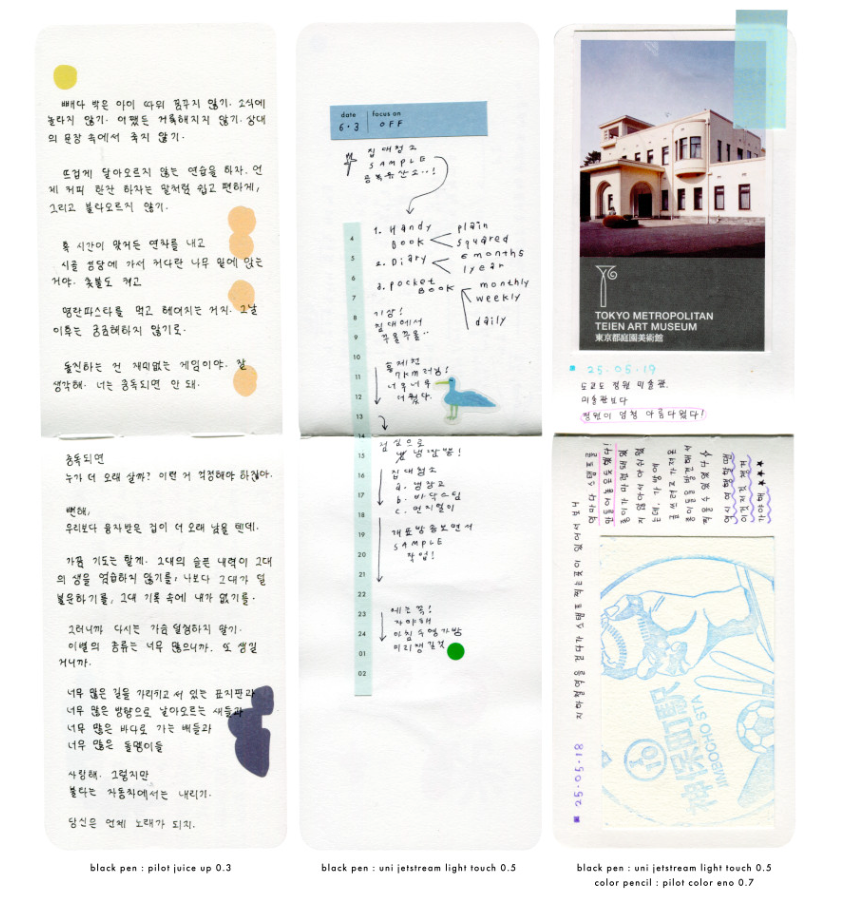 빼다 박은 아이 따위 꿈꾸지 않기. 소식에
놀라지 않기. 어쨌든 거룩해지지 않기. 상대
의 문장 속에서 죽지 않기.
뜨겁게 달아오르지 않는 연습을 하자. 언
제 커피 한잔 하자는 말처럼 쉽고 편하게,
그리고 불타오르지 않기.
혹 시간이 맞거든 연차를 내고
시골 성당에 가서 커다란 나무 밑에 앉는
거야. 촛불도 켜고
명란파스타를 먹고 헤어지는 거지. 그날
이후는 궁금해하지 않기로.
돌진하는 건 재미없는 게임이야. 잘
생각해. 너는 중독되면 안 돼.
중독되면
누가 더 오래 살까? 이런 거 걱정해야 하잖아.
뻔해,
우리보다 융자받은 집이 더 오래 남을 텐데.
가끔 기도는 할게. 그대의 슬픈 내력이 그대
의 생을 엄습하지 않기를, 나보다 그대가 덜
불운하기를, 그대 기록 속에 내가 없기를.
그러니까 다시는 가슴 덜컹하지 말기.
이별의 종류는 너무 많으니까. 또 생길
거니까.
너무 많은 길을 가리키고 서 있는 표지판과
너무 많은 방향으로 날아오르는 새들과
너무 많은 바다로 가는 배들과
너무 많은 돌멩이들
사랑해. 그렇지만
불타는 자동차에서는 내리기.
당신은 언제 노래가 되지.
black pen : pilot juice up 0.3
date
focus on
6.3
OFF
집 대청소
SAMPLE
1. Handy
Book
plain
squared
2. Diary
6 months
1year
3. pocket
BOOK
monthly
weekly
daily
4
5
6
7
8
9
10
11
12
13
14
15
16
17
18
19
20
21
22
23
24
01
02
기상!
침대에서
꾸물꾸물..
너무너무
더웠다.
점심으로
집 대청소
a. 냉장고
b. 바닥 스팀
c. 먼지털이
개표방송보면서
SAMPLE
작업!
가야해
아침 수영가방
black pen : uni jetstream light touch 0.5
TOKYO METROPOLITAN
TEIEN ART MUSEUM
東京都庭園美術館
25.05.19
도쿄도 정원 미술관.
미술관보다
정원이 엄청 아름다웠다!
25.05.18
神保町駅
JIMBOCHO STA
black pen : uni jetstream light touch 0.5
color pencil : pilot color eno 0.7